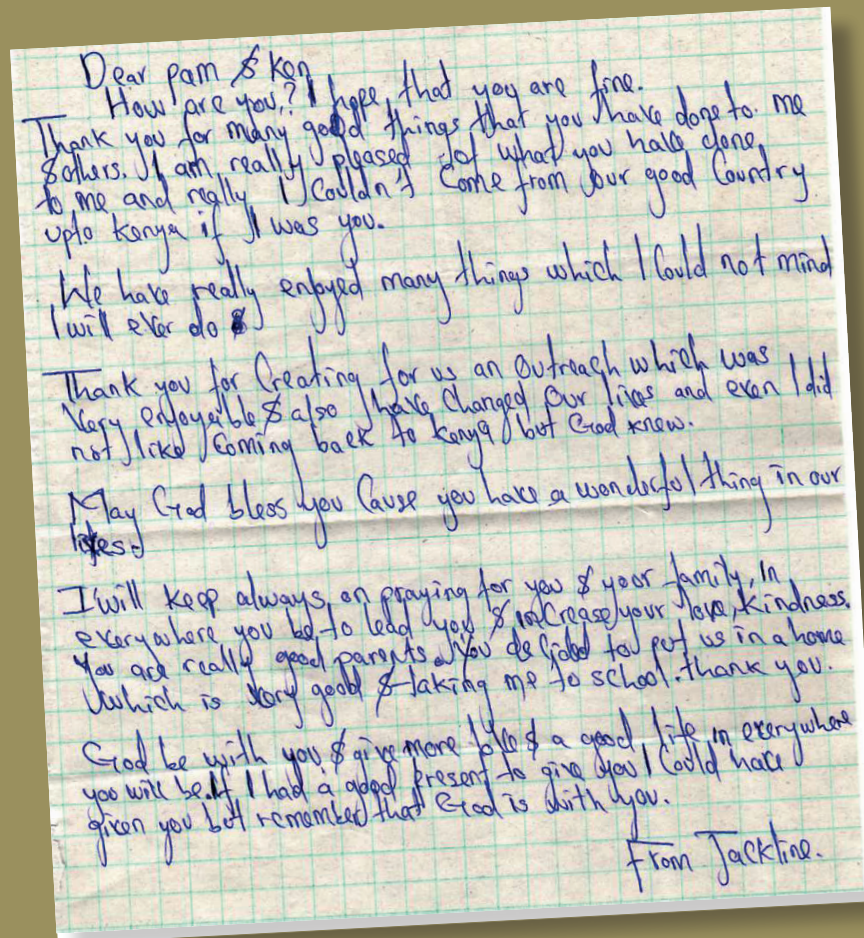 Dear pam & ken
How are you? I hope that you are fine.
Thank you for many good things that you have done to me
& others. I am really pleased of what you have done
to me and really I Couldn't Come from our good Country
upto Kenya if I was you.
We have really enjoyed many things which I Could not mind
I will ever do
Thank you for Creating for us an Outreach which was
Very enjoyable & also have Changed Our lives and even I did
not like Coming back to Kenya but God knew.
May God bless you Cause you have a wonderful thing in our
lifes.
I will keep always on praying for you & your family, in
everywhere you be to lead you & increase your love, kindness.
You are really good parents. You decided to put us in a home
which is very good & taking me to school. thank you.
God be with you & give more & a good life in everywhere
you will be. If I had a good present to give you I Could have
given you but remember that God is with you.
From Jackline.